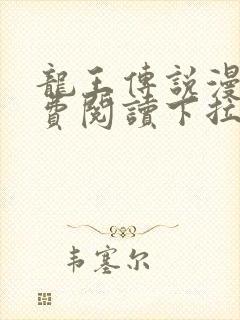 龍王傳說漫
費閱讀下拉
韦塞尔